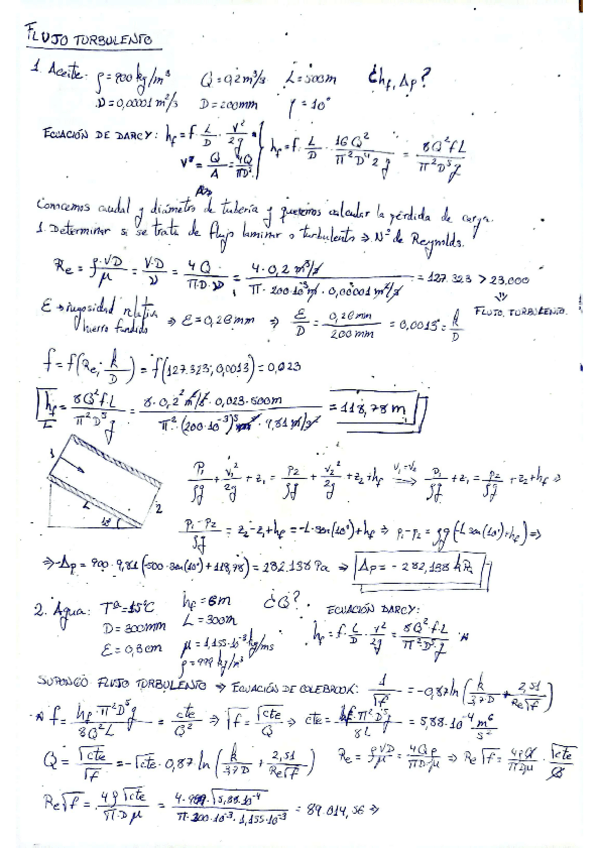 FLUJO TURBULENTO
1. Aceite: ρ=900 kg/m³ Q=0,2 m³/s L=500m ¿hf, Δp?
ν=0,00001 m²/s D=200mm φ=10°
ECUACIÓN DE DARCY: hf = f · L/D · V²/2g
V = Q/A = 4Q/πD² hf = f · L/D · 16Q²/π²D⁴2g = 8Q²fL/π²D⁵g
Conocemos caudal y diámetro de tubería y queremos calcular la pérdida de carga.
1. Determinar si se trata de flujo laminar o turbulento ⇒ Nº de Reynolds.
Re = ρ·VD/μ = V·D/ν = 4Q/π·D·ν = 4·0,2 m³/s / π·200·10⁻³m·0,00001 m²/s = 127.323 > 23.000
⇓ FLUJO TURBULENTO.
ε → rugosidad relativa hierro fundido ⇒ ε=0,26mm ⇒ ε/D = 0,26mm/200mm = 0,0013 = k/D
f = f(Re; k/D) = f(127.323; 0,0013) = 0,023
hf = 8Q²fL/π²D⁵g = 8·0,2² m⁶/s²·0,023·500m / π²·(200·10⁻³)⁵ m⁵·9,81 m/s² = 118,78 m
1 2 L 10°
P₁/ρg + v₁²/2g + z₁ = P₂/ρg + v₂²/2g + z₂ + hf ⟹ V₁=V₂ P₁/ρg + z₁ = P₂/ρg + z₂ + hf ⇒
P₁-P₂/ρg = z₂-z₁+hf = -L·sen(10°)+hf ⇒ P₁-P₂ = ρg(-L sen(10°)+hf) ⇒
⇒ -Δp = 900·9,81(-500·sen(10°)+118,78) = 282.138 Pa ⇒ Δp = -282,138 kPa
2. Agua: Tª=15°C hf=6m ¿Q? ECUACIÓN DARCY:
D=300mm L=300m hf = f·L/D·V²/2g = 8Q²fL/π²D⁵g
ε=0,3mm μ=1,155·10⁻³ kg/ms
ρ=999 kg/m³
SUPONGO FLUJO TURBULENTO ⇒ ECUACIÓN DE COLEBROOK: 1/√f = -0,87 ln(k/3,7D + 2,51/Re√f)
f = hf·π²D⁵g/8Q²L = cte/Q² ⇒ √f = √cte/Q ⇒ cte = hf·π²D⁵g/8L = 5,88·10⁻⁴ m⁶/s²
Q = √cte/√f = -√cte·0,87 ln(k/3,7D + 2,51/Re√f) Re = ρVD/μ = 4Qρ/πDμ ⇒ Re√f = 4ρQ/πDμ · √cte/Q
Re√f = 4ρ√cte/π·D·μ = 4·999·√5,88·10⁻⁴ / π·300·10⁻³·1,155·10⁻³ = 89.014,56 ⇒